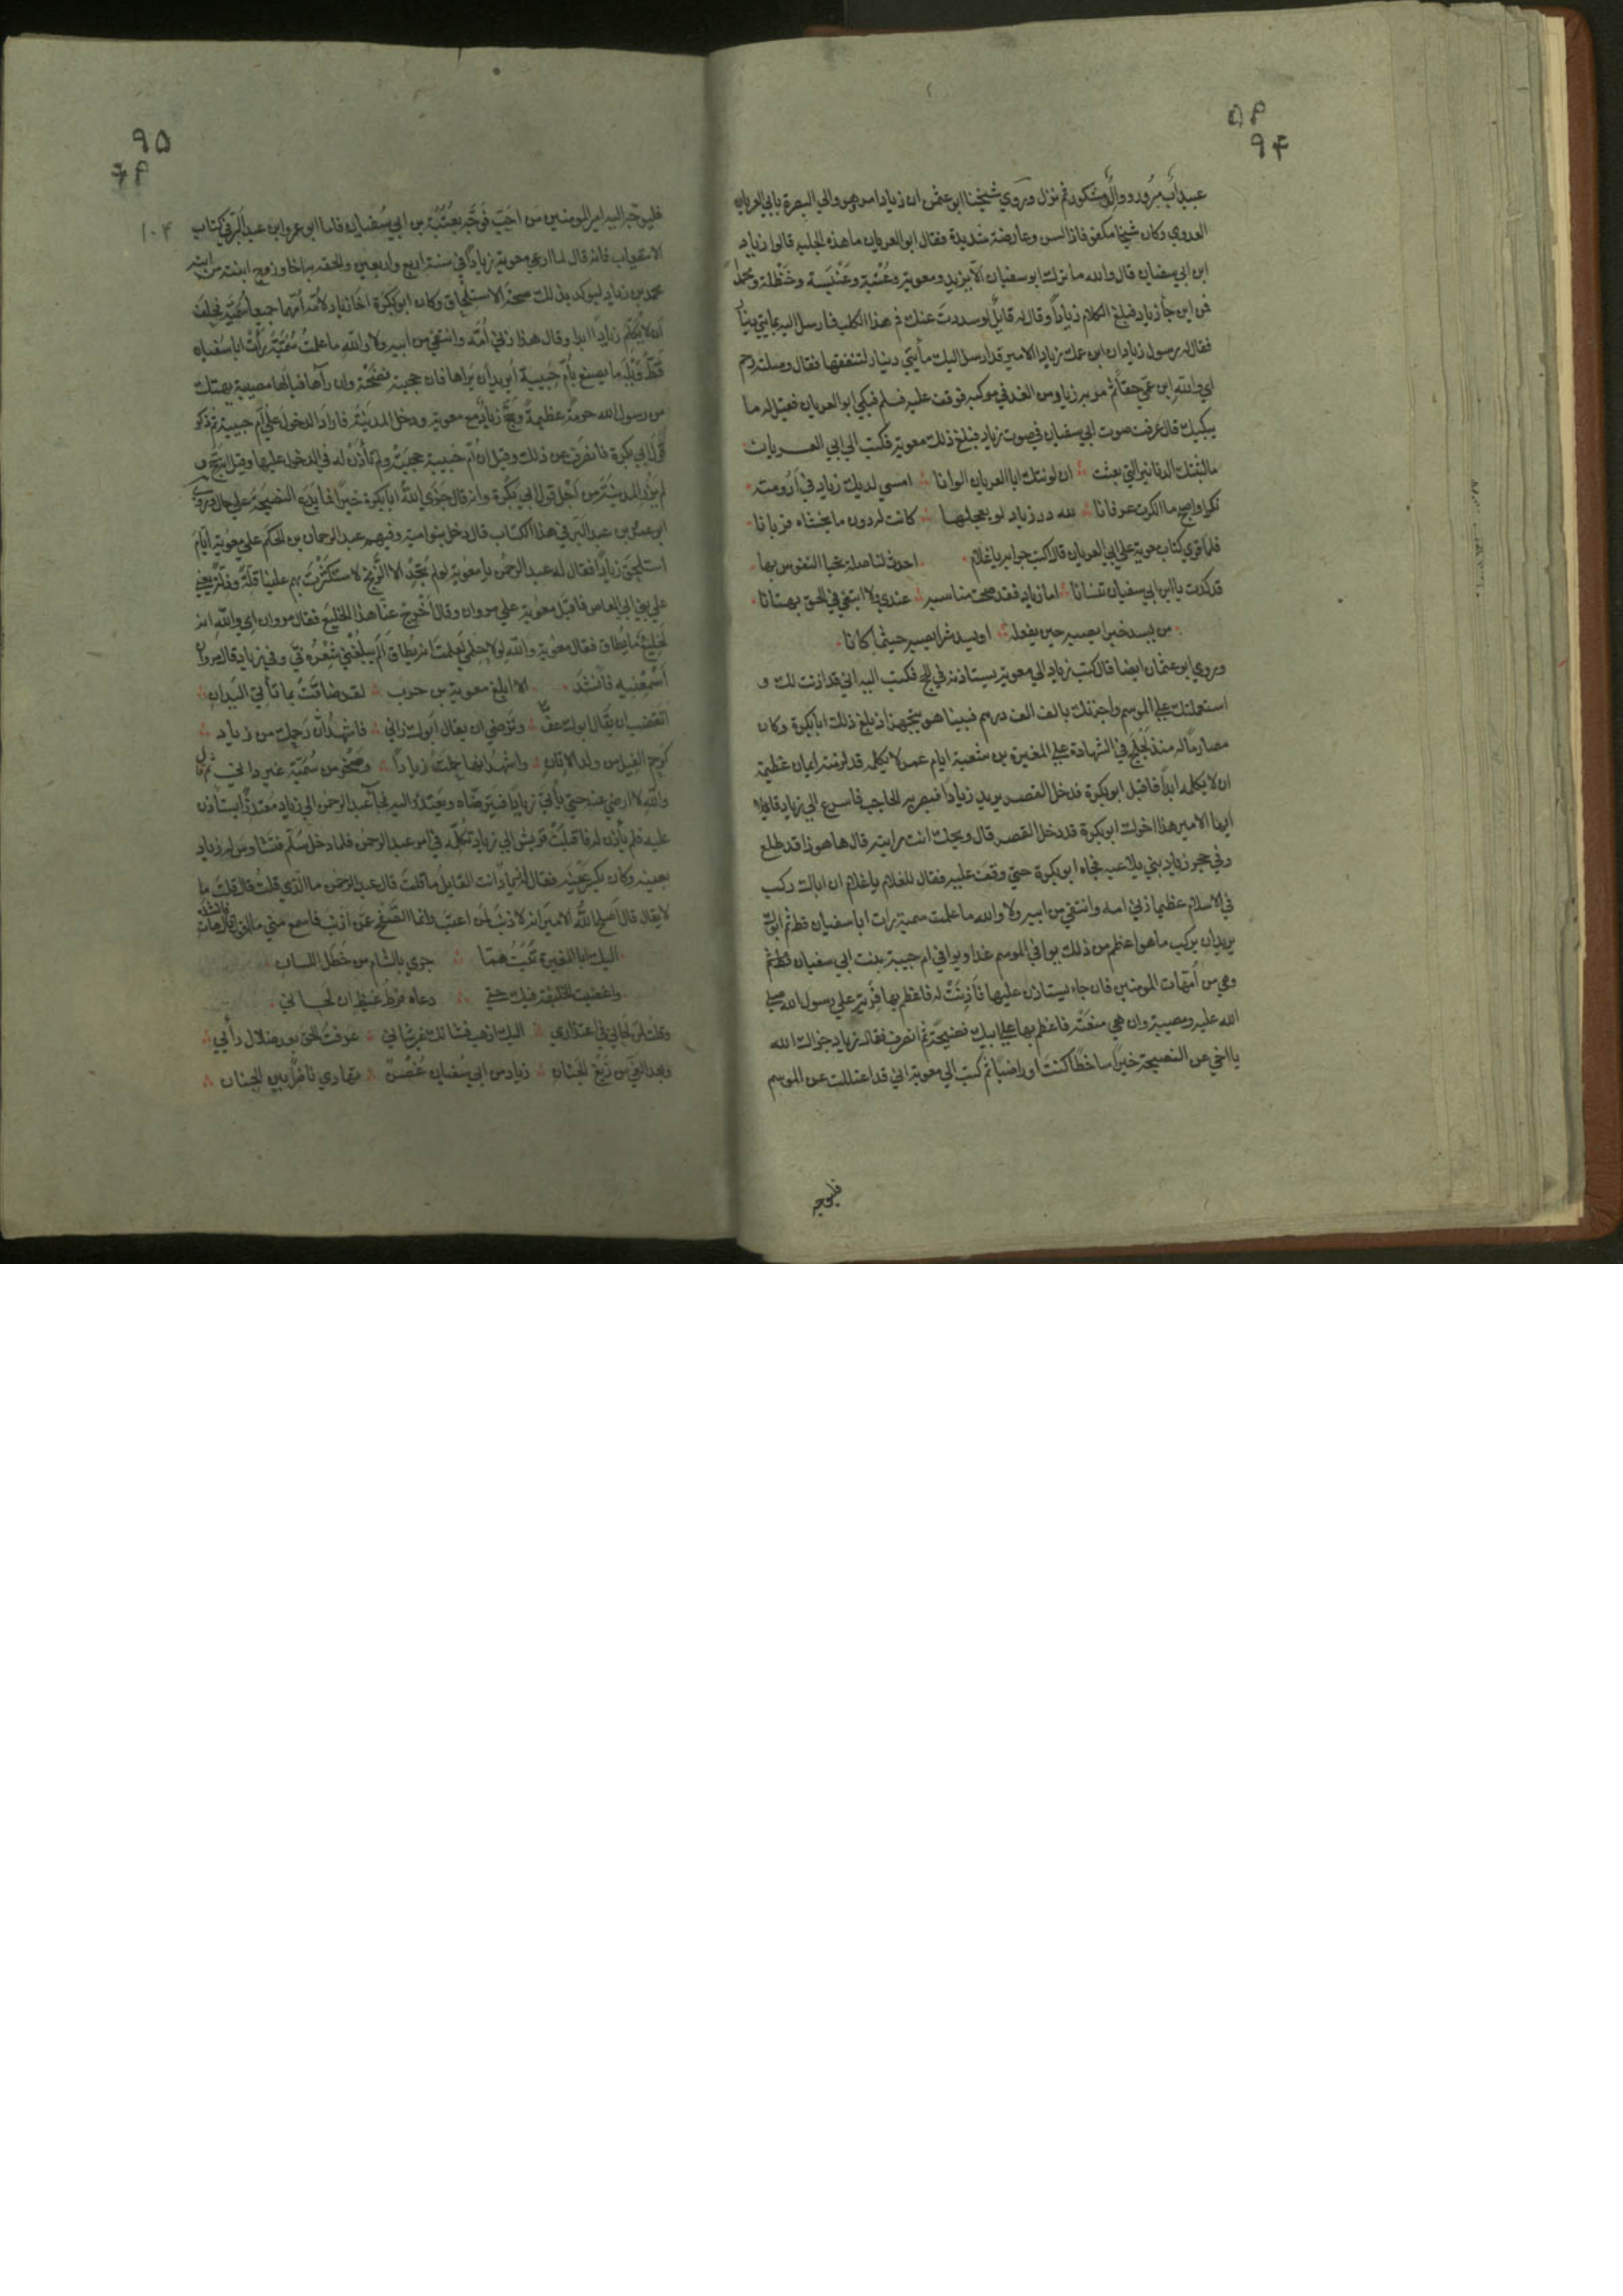 ۹۴
عبيد أب مرود ووالى مشكور ثم نزل وروي شيخنا ابو عثمن ان زيادا مر وهو والي البصرة بابي العريان
العدوي وكان شيخا مكفوفا ذا لسن وعارضة شديدة فقال ابو العريان ما هذه الجلبه قالوا زياد
ابن ابي سفيان قال والله ما ترك ابو سفيان الا يزيد ومعوية وعتبة وعنبسة وحنظلة ومحمدا
فمن اين جأ زياد فبلغ الكلام زيادا وقال له قايل لو سددت عنك فم هذا الكلب فارسل اليه بمايتي دينار
فقال له رسول زياد ان ابن عمك زيادا الامير قد ارسل اليك مأيتي دينار لتنفقها فقال وصلته رحم
اي والله ابن عمي حقا ثم مر به زياد من الغد في موكبه فوقف عليه فسلم فبكي ابو العريان فقيل له ما
يبكيك قال عرفت صوت ابي سفيان في صوت زياد فبلغ ذلك معوية فكتب الي ابي العريان
ما البثتك الدنانير التي بعثت ان لونتك ابا العريان الوانا امسي لديك زياد في ارومته
نكرا واصبح ما انكرت عرفانا لله در زياد لو يعجلها كانت له دون ما يخشاه قربانا
فلما قري كتاب معوية علي ابي العريان قال اكتب جوابه يا غلام احدث لنا صلة تحيا النفوس بها
قد كدت يا ابن ابي سفيان تنسانا اما زياد فقد صحت مناسبه عندي ولا ابتغي في الحق بهتانا
من يسد خيرا يصبه حين يفعله او يسد شرا يصبه حيثما كانا
وروي ابو عثمان ايضا قال كتب زياد الي معوية يستاذنه في الحج فكتب اليه اني قد اذنت لك و
استعملتك علي الموسم واجزتك بالف الف درهم فبينا هو يتجهز اذ بلغ ذلك ابا بكرة وكان
مصارما له منذ لجلج في الشهادة علي المغيرة بن شعبة ايام عمر لا يكلمه قد لزمته ايمان عظيمة
ان لا يكلمه ابدا فاقبل ابو بكرة فدخل القصر يريد زيادا فبصر به الحاجب فاسرع الي زياد قايلا
ايها الامير هذا اخوك ابو بكرة قد دخل القصر قال ويحك انت رايته قال ها هو ذا قد طلع
وفي حجر زياد بني يلاعبه فجاه ابو بكرة حتي وقف عليه فقال للغلام يا غلام ان اباك ركب
في الاسلام عظيما زني امه وانتفي من ابيه ولا والله ما علمت سمية رات ابا سفيان قط ثم ابوك
يريد ان يركب ما هو اعظم من ذلك يوافي الموسم غدا ويوافي ام حبيبة بنت ابي سفيان
وهي من امهات المومنين فان جاء يستاذن عليها فاذنت له فاعظم بها فرية علي رسول الله صلي
الله عليه ومصيبة وان هي منعته فاعظم بها علي ابيك فضيحة ثم انصرف فقال زياد جزاك الله
يا اخي عن النصيحة خيرا ساخطا كنت او راضيا ثم كتب الي معوية اني قد اعتللت عن الموسم
فليوجه
۹۵
۱۰۴
فليوجه اليه امير المومنين من احب فوجه بعتبة بن ابي سفيان فاما ابو عمر وابن عبد البر في كتاب
الاستيعاب فانه قال لما ادعي معوية زيادا في سنة اربع واربعين والحقه به اخا وزوج ابنته من ابنه
محمد بن زياد ليوكد بذلك صحة الاستلحاق وكان ابو بكرة اخا زياد لامه امهما جميعا سمية فحلف
ان لا يكلم زيادا ابدا وقال هذا زني امه وانتفي من ابيه ولا والله ما علمت سمية رأت ابا سفيان
قط ويله ما يصنع بأم حبيبة ايريد ان يراها فان حجبته فضحته وان رآها فيا لها مصيبة يهتك
من رسول الله حرمة عظيمة وحج زياد مع معوية ودخل المدينة فاراد الدخول علي ام حبيبة ثم ذكر
قول ابي بكرة فانصرف عن ذلك وقيل ان ام حبيبة حجبته ولم تأذن له في الدخول عليها وقيل انه حج و
لم يزر المدينة من اجل قول ابي بكرة وانه قال جزي الله ابا بكرة خيرا فما يدع النصيحة علي حال وروي
ابو عمر بن عبد البر في هذا الكتاب قال دخل بنو امية وفيهم عبد الرحمان بن الحكم علي معوية ايام
استلحق زيادا فقال له عبد الرحمن يا معوية لو لم تجد الا الزنج لاستكثرت بهم علينا قلة وذلة يعني
علي بني ابي العاص فاقبل معوية علي مروان وقال اخرج عنا هذا الخليع فقال مروان اي والله انه
لخليع ما يطاق فقال معوية والله لولا حلمي لعلمت انه يطاق الم يبلغني شعره في وفي زياد قال مروان
اسمعنيه فأنشد الا ابلغ معوية بن حرب لقد ضاقت بما تأتي اليدان
اتغضب ان يقال ابوك عف وترضي ان يقال ابوك زاني فاشهد ان رحمك من زياد
كرحم الفيل من ولد الاتان واشهد انها حملت زيادا وصخر من سمية غير داني ثم قال
والله لا ارضي عنه حتي يأتي زيادا فيترضاه ويعتذر اليه فجأ عبد الرحمن الي زياد معتذرا يستأذن
عليه فلم يأذن له فاقبلت قريش الي زياد تكلمه في امر عبد الرحمن فلما دخل سلم فتشاوس له زياد
بعينه وكان يكسر عينه فقال له زياد انت القايل ما قلت قال عبد الرحمن ما الذي قلت قال قلت ما
لا يقال قال اصلح الله الامير انه لا ذنب لمن اعتب وانما الصفح عمن اذنب فاسمع مني ما اقول قال هات
فانشد
اليك ابا المغيرة تبت مما جري بالشام من خطل اللسان
واغضبت الخليفة فيك حتي دعاه فرط غيظ ان لحاني
وقلت لمن لحاني في اعتذاري اليك اذهب فشانك غير شاني عرفت الحق بعد ضلال رأيي
وبعد الغي من زيغ الجنان زياد من ابي سفيان غصن تهادي ناضرا بين الجنان